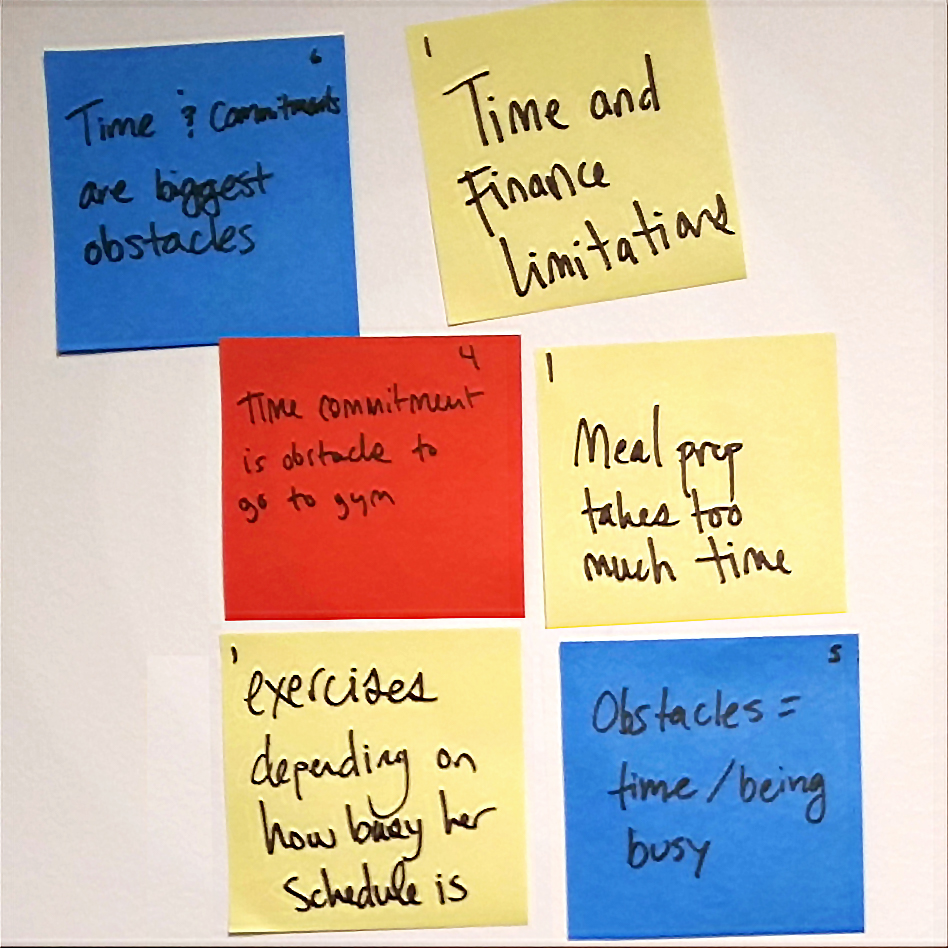 6
Time & Commitments
are biggest
obstacles
1
Time and
Finance
limitations
4
Time commitment
is obstacle to
go to gym
1
Meal prep
takes too
much time
1
exercises
depending on
how busy her
Schedule is
5
Obstacles =
time / being
busy